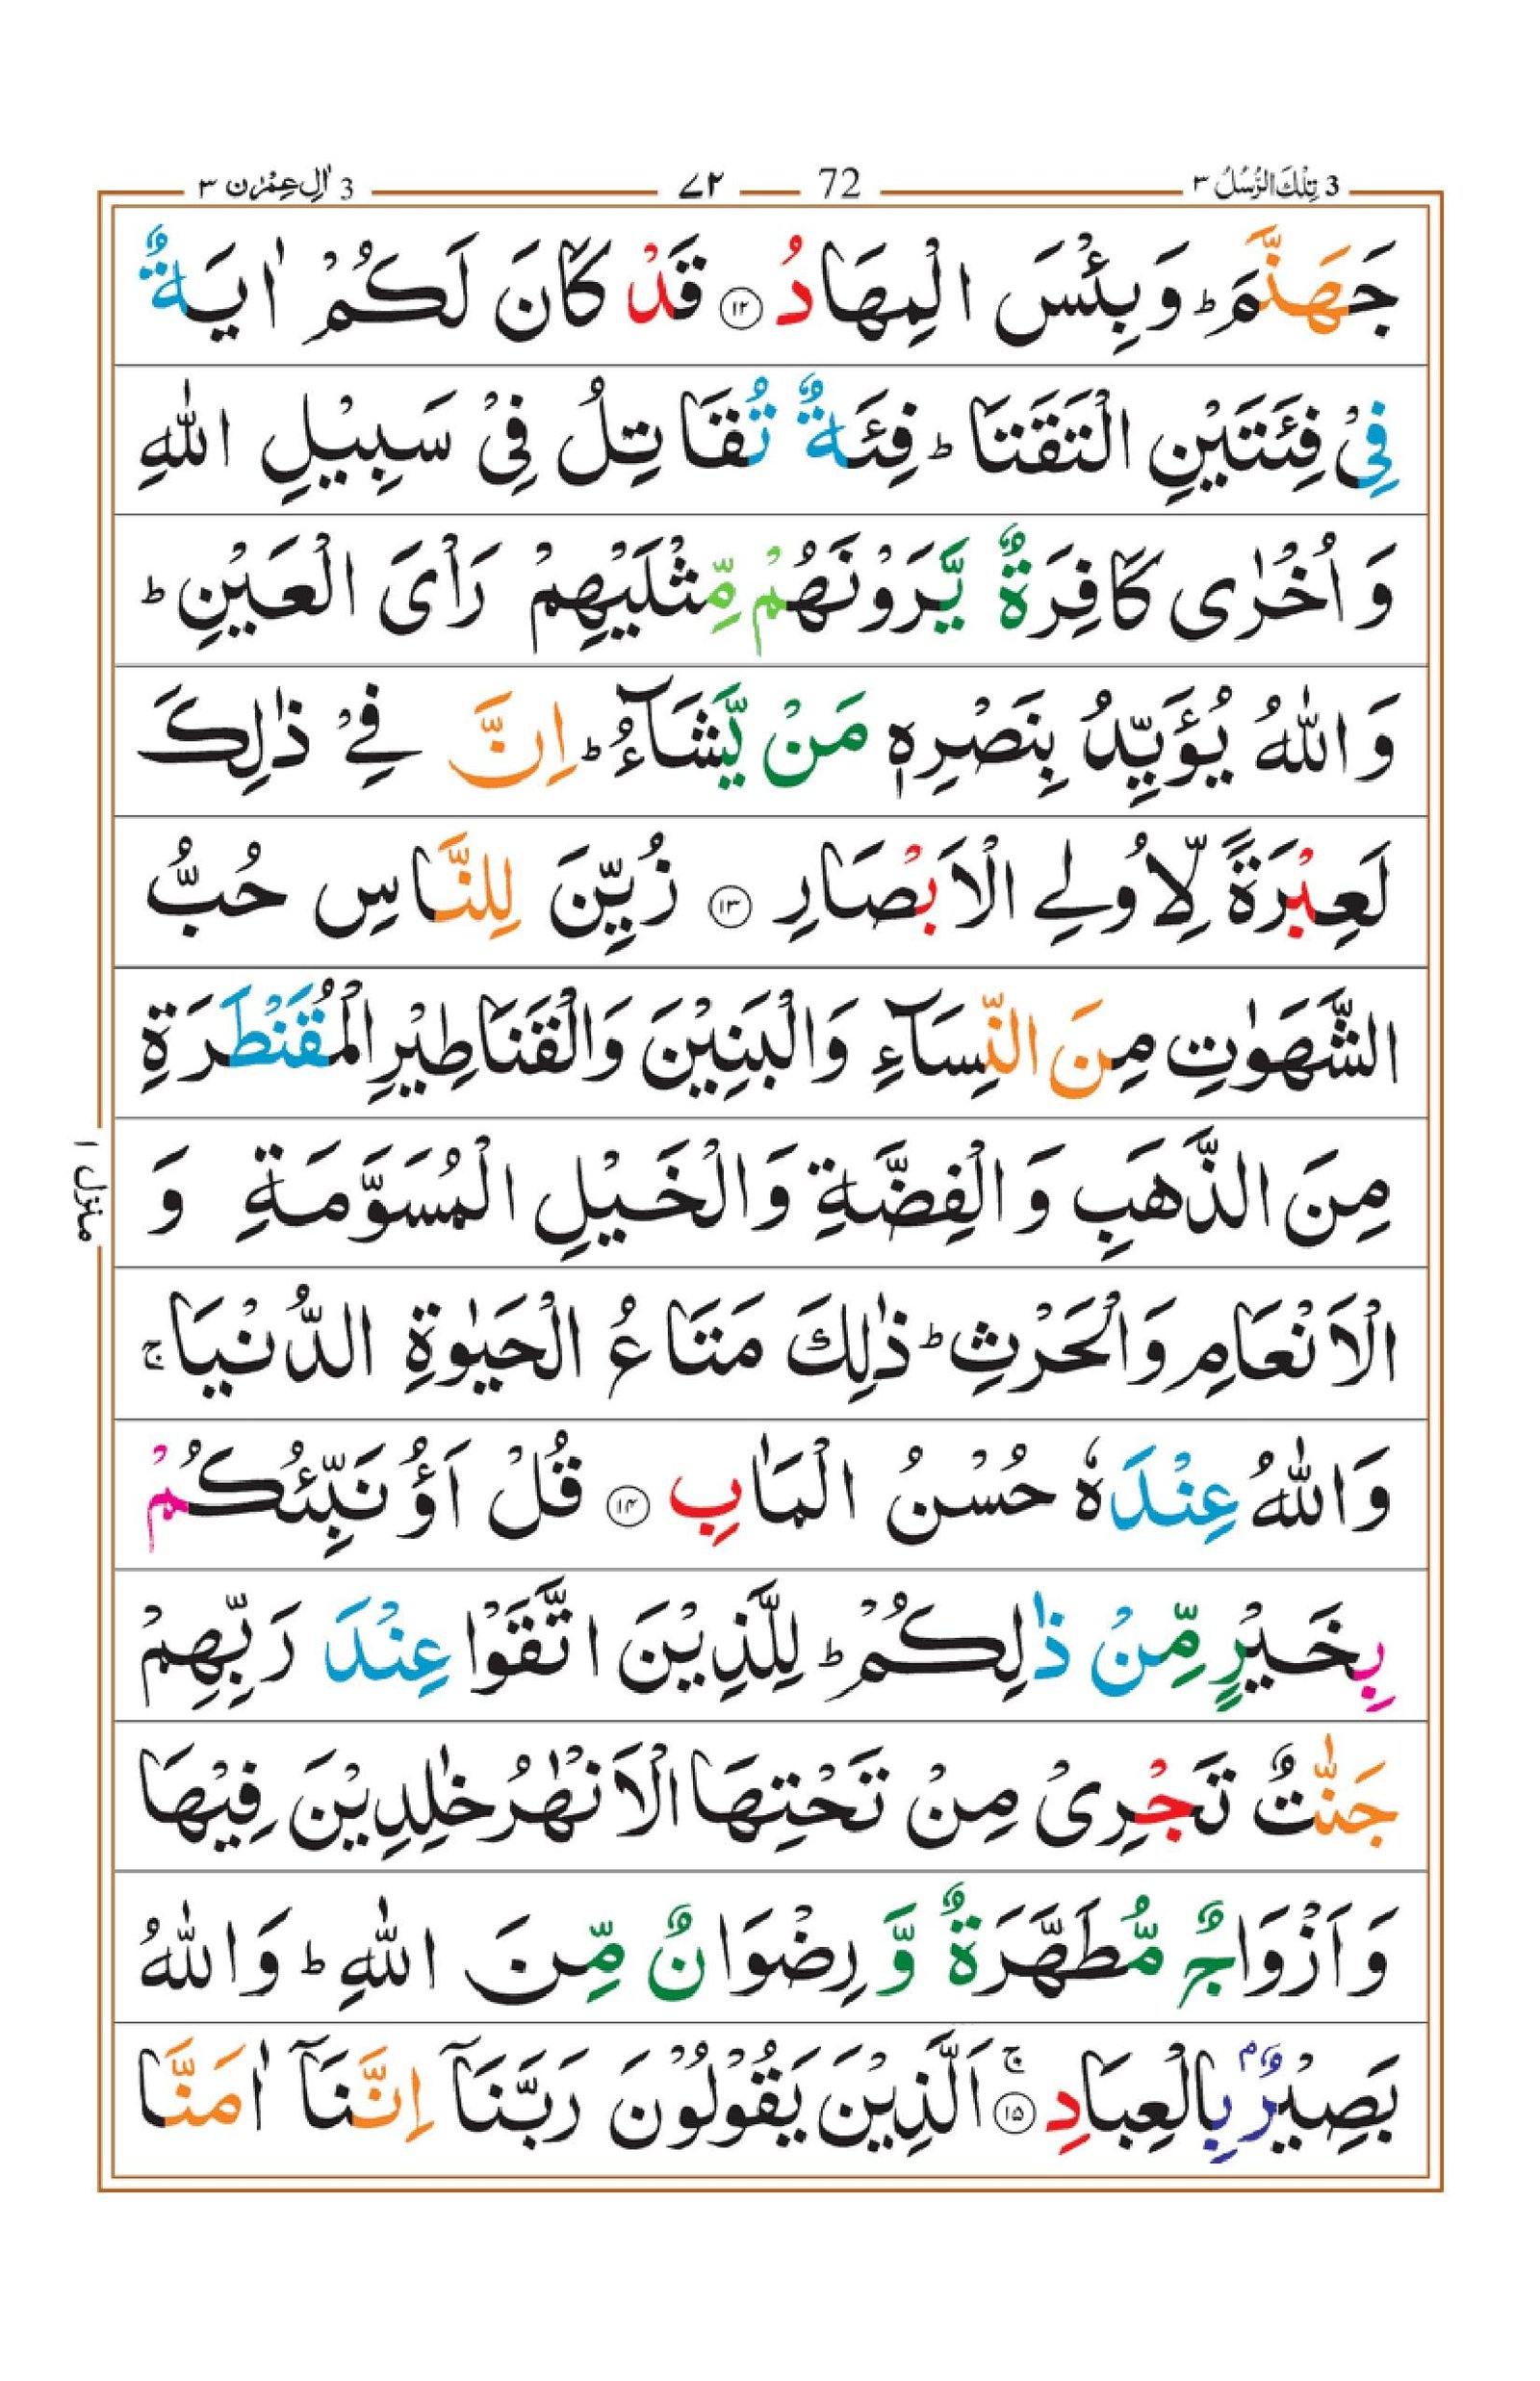 3 تِلْكَ الرُّسُلُ ٣
72 ٧٢
3 اٰلِ عِمْرٰن ٣
جَهَنَّمَ ؕ وَبِئْسَ الْمِهَادُ ۝۱۲ قَدْ كَانَ لَكُمْ اٰيَةٌ
فِیْ فِئَتَيْنِ الْتَقَتَا ؕ فِئَةٌ تُقَاتِلُ فِیْ سَبِيْلِ اللّٰهِ
وَ اُخْرٰى كَافِرَةٌ يَّرَوْنَهُمْ مِّثْلَيْهِمْ رَاْیَ الْعَيْنِ ؕ
وَ اللّٰهُ يُؤَيِّدُ بِنَصْرِهٖ مَنْ يَّشَآءُ ؕ اِنَّ فِیْ ذٰلِكَ
لَعِبْرَةً لِّاُولِی الْاَبْصَارِ ۝۱۳ زُيِّنَ لِلنَّاسِ حُبُّ
الشَّهَوٰتِ مِنَ النِّسَآءِ وَالْبَنِيْنَ وَالْقَنَاطِيْرِ الْمُقَنْطَرَةِ
مِنَ الذَّهَبِ وَ الْفِضَّةِ وَالْخَيْلِ الْمُسَوَّمَةِ وَ
الْاَنْعَامِ وَالْحَرْثِ ؕ ذٰلِكَ مَتَاعُ الْحَيٰوةِ الدُّنْيَا ۚ
وَاللّٰهُ عِنْدَهٗ حُسْنُ الْمَاٰبِ ۝۱۴ قُلْ اَؤُنَبِّئُكُمْ
بِخَيْرٍ مِّنْ ذٰلِكُمْ ؕ لِلَّذِيْنَ اتَّقَوْا عِنْدَ رَبِّهِمْ
جَنّٰتٌ تَجْرِیْ مِنْ تَحْتِهَا الْاَنْهٰرُ خٰلِدِيْنَ فِيْهَا
وَ اَزْوَاجٌ مُّطَهَّرَةٌ وَّ رِضْوَانٌ مِّنَ اللّٰهِ ؕ وَاللّٰهُ
بَصِيْرٌۢ بِالْعِبَادِ ۝۱۵ ۚ اَلَّذِيْنَ يَقُوْلُوْنَ رَبَّنَآ اِنَّنَآ اٰمَنَّا
منزل ١